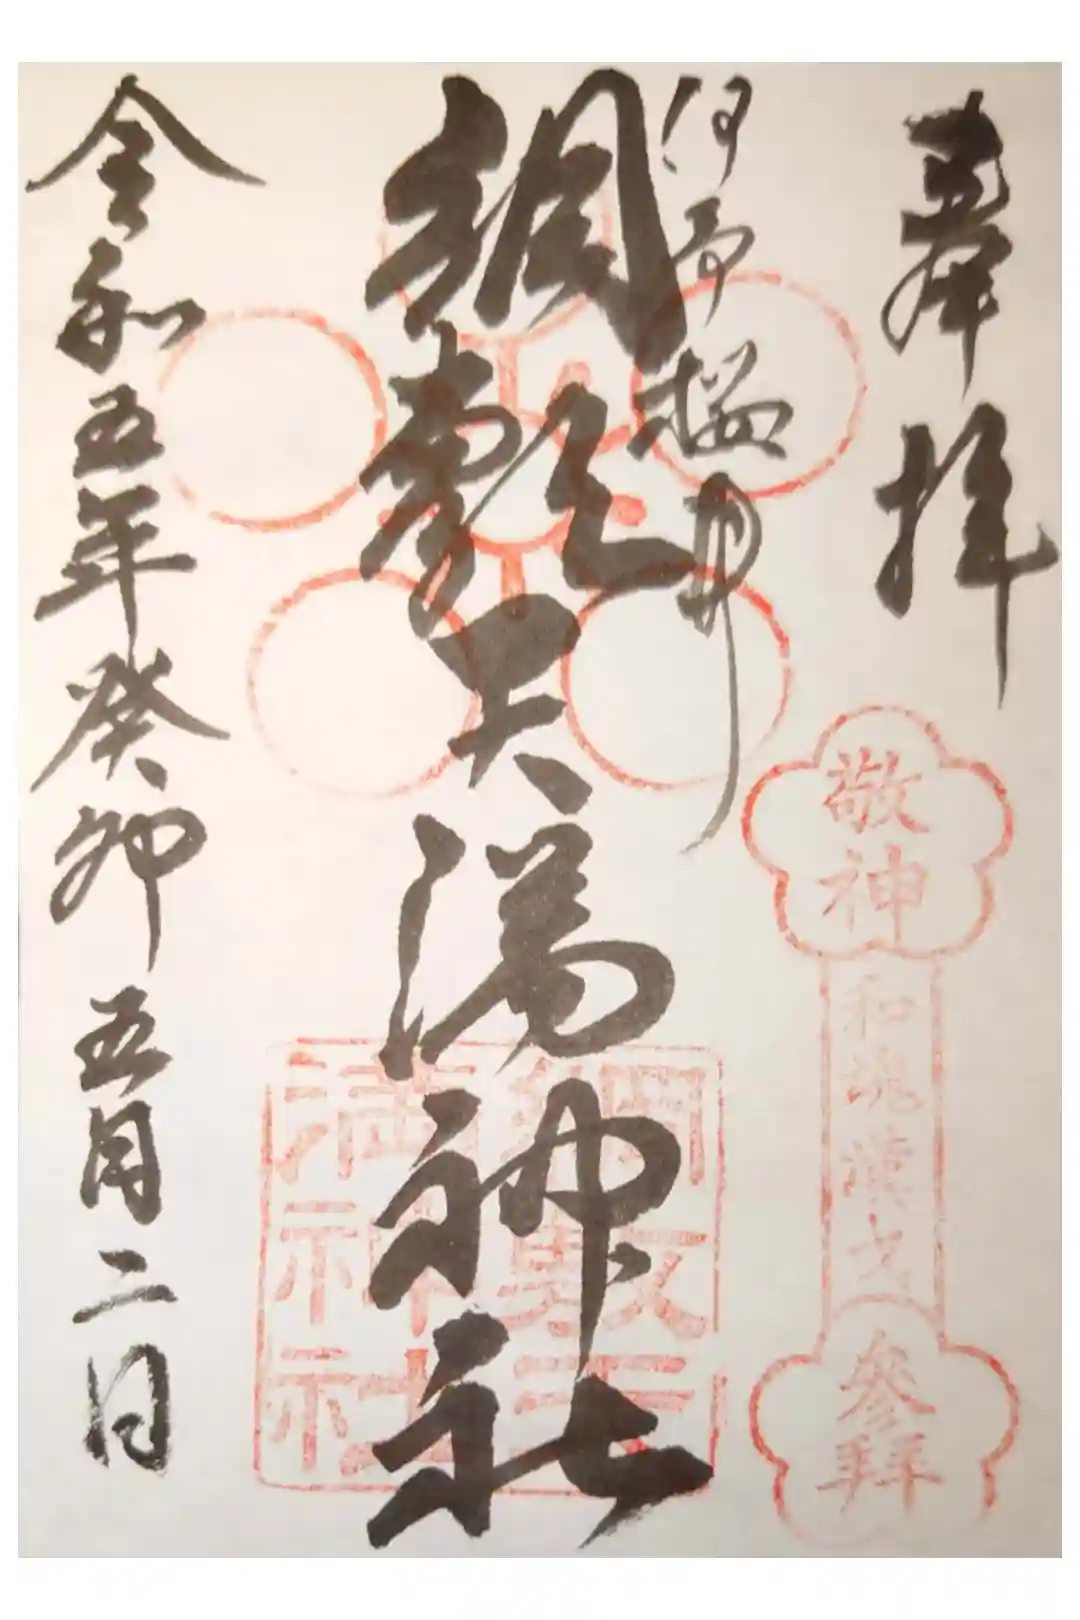 奉拝
敬神
和魂漢才
參拜
伊予櫻井
綱敷天満神社
綱敷天
満神社
令和五年癸卯五月二日